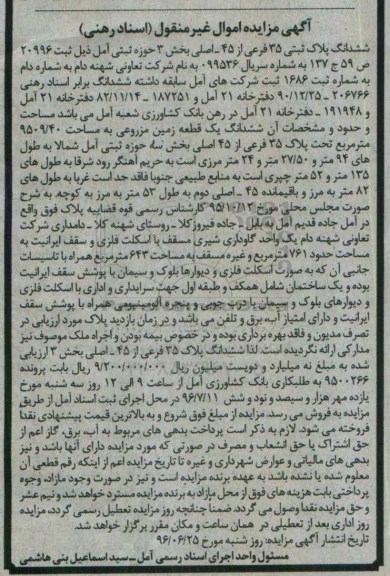 آگهی مزایده اموال غیرمنقول (اسناد رهنی)
ششدانگ پلاک ثبتی ۳۵ فرعی از ۴۵ ـ اصلی بخش ۳ حوزه ثبتی آمل ذیل ثبت ۲۰۹۹۶
ص ۵۹ ج ۱۳۷ به شماره سریال ۰۹۹۵۳۶ به نام شرکت تعاونی شهنه دام به شماره دام
به شماره ثبت ۱۶۸۶ ثبت شرکت های آمل سابقه داشته ششدانگ برابر اسناد رهنی
۲۰۶۷۶۶ ـ ۹۰/۱۲/۲۵ دفترخانه ۲۱ آمل و ۱۸۷۲۵۱ ـ ۸۲/۱۱/۱۴ دفترخانه ۲۱ آمل و
۱۹۱۹۴۸ ـ دفترخانه ۲۱ آمل در رهن بانک کشاورزی شعبه آمل می باشد مساحت
و حدود و مشخصات آن ششدانگ یک قطعه زمین مزروعی به مساحت ۹۵۰۹/۴۰
مترمربع تحت پلاک ۳۵ فرعی از ۴۵ اصلی بخش سه حوزه ثبتی آمل شمالا به طول
های ۹۴ متر و ۲۷/۵۰ متر و ۲۴ متر مرزی است به حریم آهنگر رود شرقا به طول های
۱۳۵ متر و ۵۲ متر چپری است به منابع طبیعی جنوبا فاقد حد است غربا به طول های
۸۲ متر به مرز و باقیمانده ۴۵ ـ اصلی دوم به طول ۵۳ متر به مرز به کوچه. به شرح
صورت مجلس محلی مورخ ۹۵/۱۰/۱۲ کارشناس رسمی قوه قضاییه پلاک فوق واقع
در آمل جاده قدیم آمل به بابل ـ جاده فیروزکلا ـ روستای شهنه کلا ـ دامداری شرکت
تعاونی شهنه دام یک واحد گاوداری شیری مسقف با اسکلت فلزی و سقف ایرانیت به
مساحت حدود ۷۶۱ مترمربع و غیره مسقف به مساحت ۶۴۳ مترمربع همراه با تاسیسات
جانبی آن که به صورت اسکلت فلزی و دیوارها بلوک و سیمان با پوشش سقف ایرانیت
بوده و یک ساختمان شامل همکف و طبقه اول جهت سرایداری و اداری با اسکلت فلزی
و دیوارهای بلوک و سیمان با درب چوبی و پنجره آلومینیومی همراه با پوشش سقف
ایرانیت و دارای امتیاز آب، برق و تلفن می باشد و در زمان بازدید پلاک مورد ارزیابی در
تصرف مدیون و فاقد بهره برداری بوده و در خصوص بیمه بودن و اجراه ملک موصوف نیز
مدارکی ارائه نگردیده است. لذا ششدانگ پلاک ۳۵ فرعی از ۴۵ ـ اصلی بخش ۳ ارزیابی
شده به مبلغ نه میلیارد و دویست میلیون ریال ۹/۲۰۰/۰۰۰/۰۰۰ ریال بابت پرونده
۹۵۰۰۲۶۶ به طلبکاری بانک کشاورزی آمل از ساعت ۹ الی ۱۲ روز سه شنبه مورخ
یازده مهر هزار و سیصد و نود و شش ۹۶/۷/۱۱ در محل اجرای ثبت اسناد آمل از طریق
مزایده به فروش می رسد. مزایده از مبلغ فوق شروع و به بالاترین قیمت پیشنهادی نقدا
فروخته می شود. لازم به ذکر است پرداخت بدهی های مربوط به آب، برق، گاز اعم از
حق اشتراک یا حق انشعاب و مصرف در صورتی که مورد مزایده دارای آنها باشد و نیز
بدهی های مالیاتی و عوارض شهرداری و غیره تا تاریخ مزایده اعم از اینکه رقم قطعی آن
معلوم شده یا نشده باشد به عهده برنده مزایده است و نیز در صورت وجود مازاد، وجوه
پرداختی بابت هزینه های فوق از محل مازاد به برنده مزایده مسترد خواهد شد و نیم عشر
و حق مزایده نقدا وصول می گردد. ضمنا چنانچه روز مزایده تعطیل رسمی گردد، مزایده
روز اداری بعد از تعطیلی در همان ساعت و مکان مقرر برگزار خواهد شد.
تاریخ انتشار آگهی مزایده: روز شنبه مورخ ۹۶/۰۶/۲۵
مسئول واحد اجرای اسناد رسمی آمل ـ سید اسماعیل بنی هاشمی